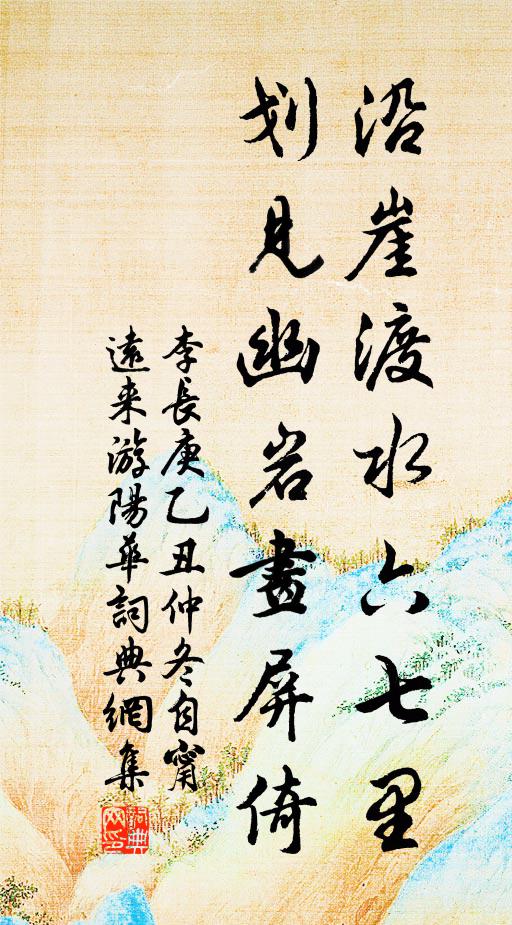 沿崖渡水六七里
划見幽岩畫屏倚
李長庚乙丑仲冬自甯
遠来游陽華詞典網集
詞典
网印